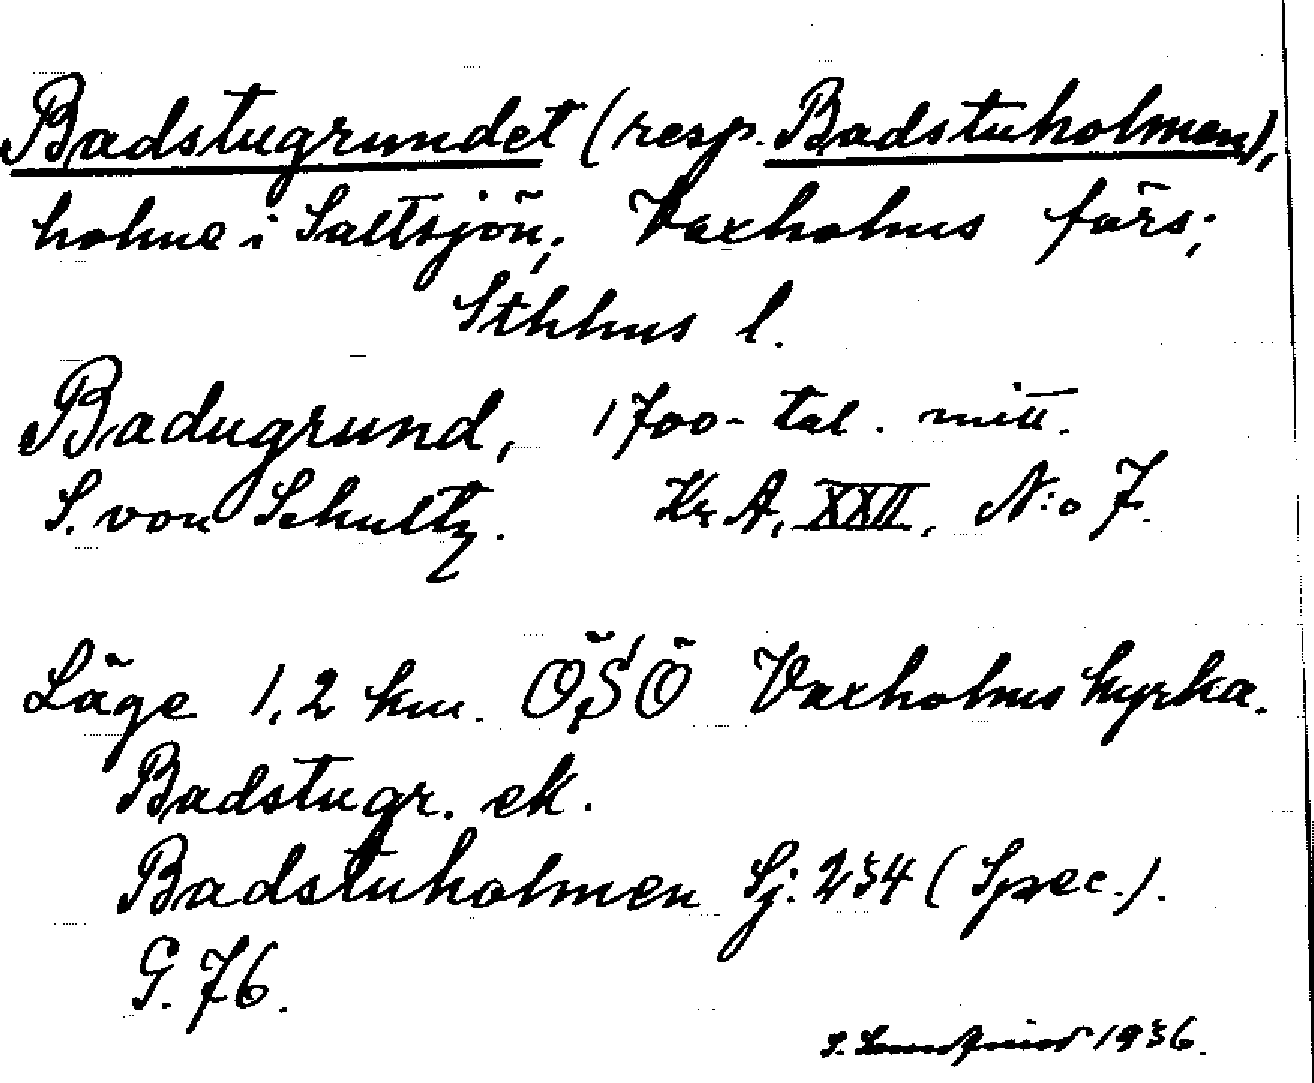 Badstugrundet (resp. Badstuholmen),
holme i Saltsjön, Vaxholms förs;
Sthlms l.
Badugrund, 1700-tal. mitt.
S. von Schultz. Kr A, XXII, N:o 7.
Läge 1,2 km. ÖSÖ Vaxholms kyrka.
Badstugr. ek.
Badstuholmen Sj. 234 (Spec.).
G. 76.
S. 1936.